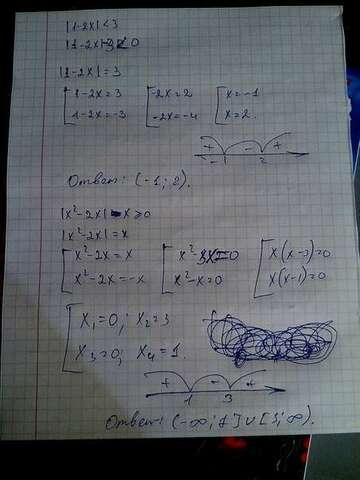 |1-2x|<3
|1-2x|-3<0
|1-2x|=3
[1-2x=3 [-2x=2 [x=-1
[1-2x=-3 [-2x=-4 [x=2.
+ - +
-1 2
Ответ: (-1; 2).
|x²-2x|-x≥0
|x²-2x|=x
[x²-2x=x [x²-3x=0 [x(x-3)=0
[x²-2x=-x [x²-x=0 [x(x-1)=0
[x₁=0; x₂=3
[x₃=0; x₄=1.
+ - +
1 3
Ответ: (-∞; 1]∪[3; ∞).